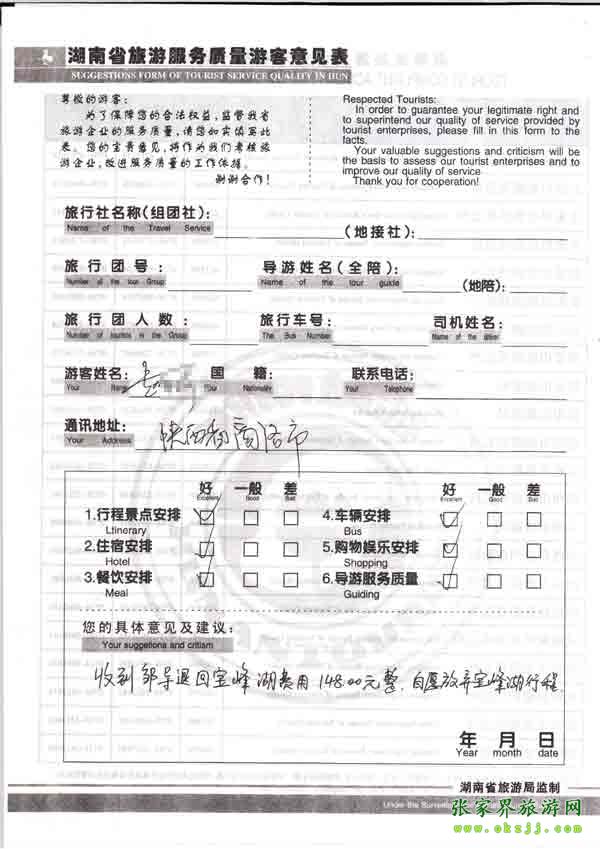 湖南省旅游服务质量游客意见表
SUGGESTIONS FORM OF TOURIST SERVICE QUALITY IN HUN
尊敬的游客：
为了保障您的合法权益，监督我省
旅游企业的服务质量，请您如实填写此
表。您的宝贵意见，将作为我们考核旅
游企业、改进服务质量的工作依据。
谢谢合作！
Respected Tourists:
In order to guarantee your legitimate right and
to superintend our quality of service provided by
tourist enterprises, please fill in this form to the
facts.
Your valuable suggestions and criticism will be
the basis to assess our tourist enterprises and to
improve our quality of service
Thank you for cooperation!
旅行社名称(组团社)： (地接社)：
Name of the Travel Service
旅行团号： 导游姓名(全陪)： (地陪)：
Number of the tour Group Name of the tour guide
旅行团人数： 旅行车号： 司机姓名：
Number of tourists in the Group The Bus Number Name of the driver
游客姓名： 国籍： 联系电话：
Your Name Your Nationality Your Telephone
通讯地址： 陕西省商洛市
Your Address
好 一般 差 好 一般 差
Excellent Good Bad Excellent Good Bad
1.行程景点安排 4.车辆安排
Ltinerary Bus
2.住宿安排 5.购物娱乐安排
Hotel Shopping
3.餐饮安排 6.导游服务质量
Meal Guiding
您的具体意见及建议：
Your suggetions and critism
收到邹导退回宝峰湖费用148.00元整，自愿放弃宝峰湖行程。
年 月 日
Year month date
湖南省旅游局监制
Under the Surveill
张家界旅游网
www.okzjj.com